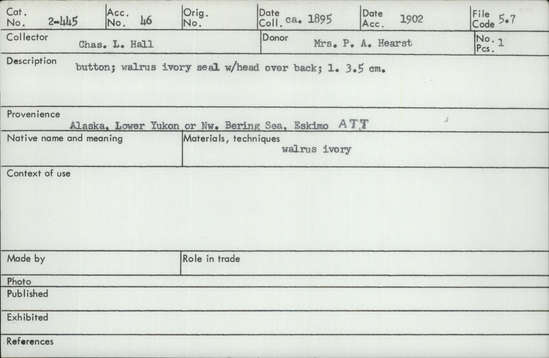 Cat. No. 2-445 Acc. No. 46 Orig. No. Date Coll. ca. 1895 Date Acc. 1902 File Code 5.7
Collector Chas. L. Hall Donor Mrs. P. A. Hearst No. Pcs. 1
Description button; walrus ivory seal w/head over back; l. 3.5 cm.
Provenience
Alaska, Lower Yukon or Nw. Bering Sea, Eskimo ATT
Native name and meaning Materials, techniques
walrus ivory
Context of use
Made by Role in trade
Photo
Published
Exhibited
References